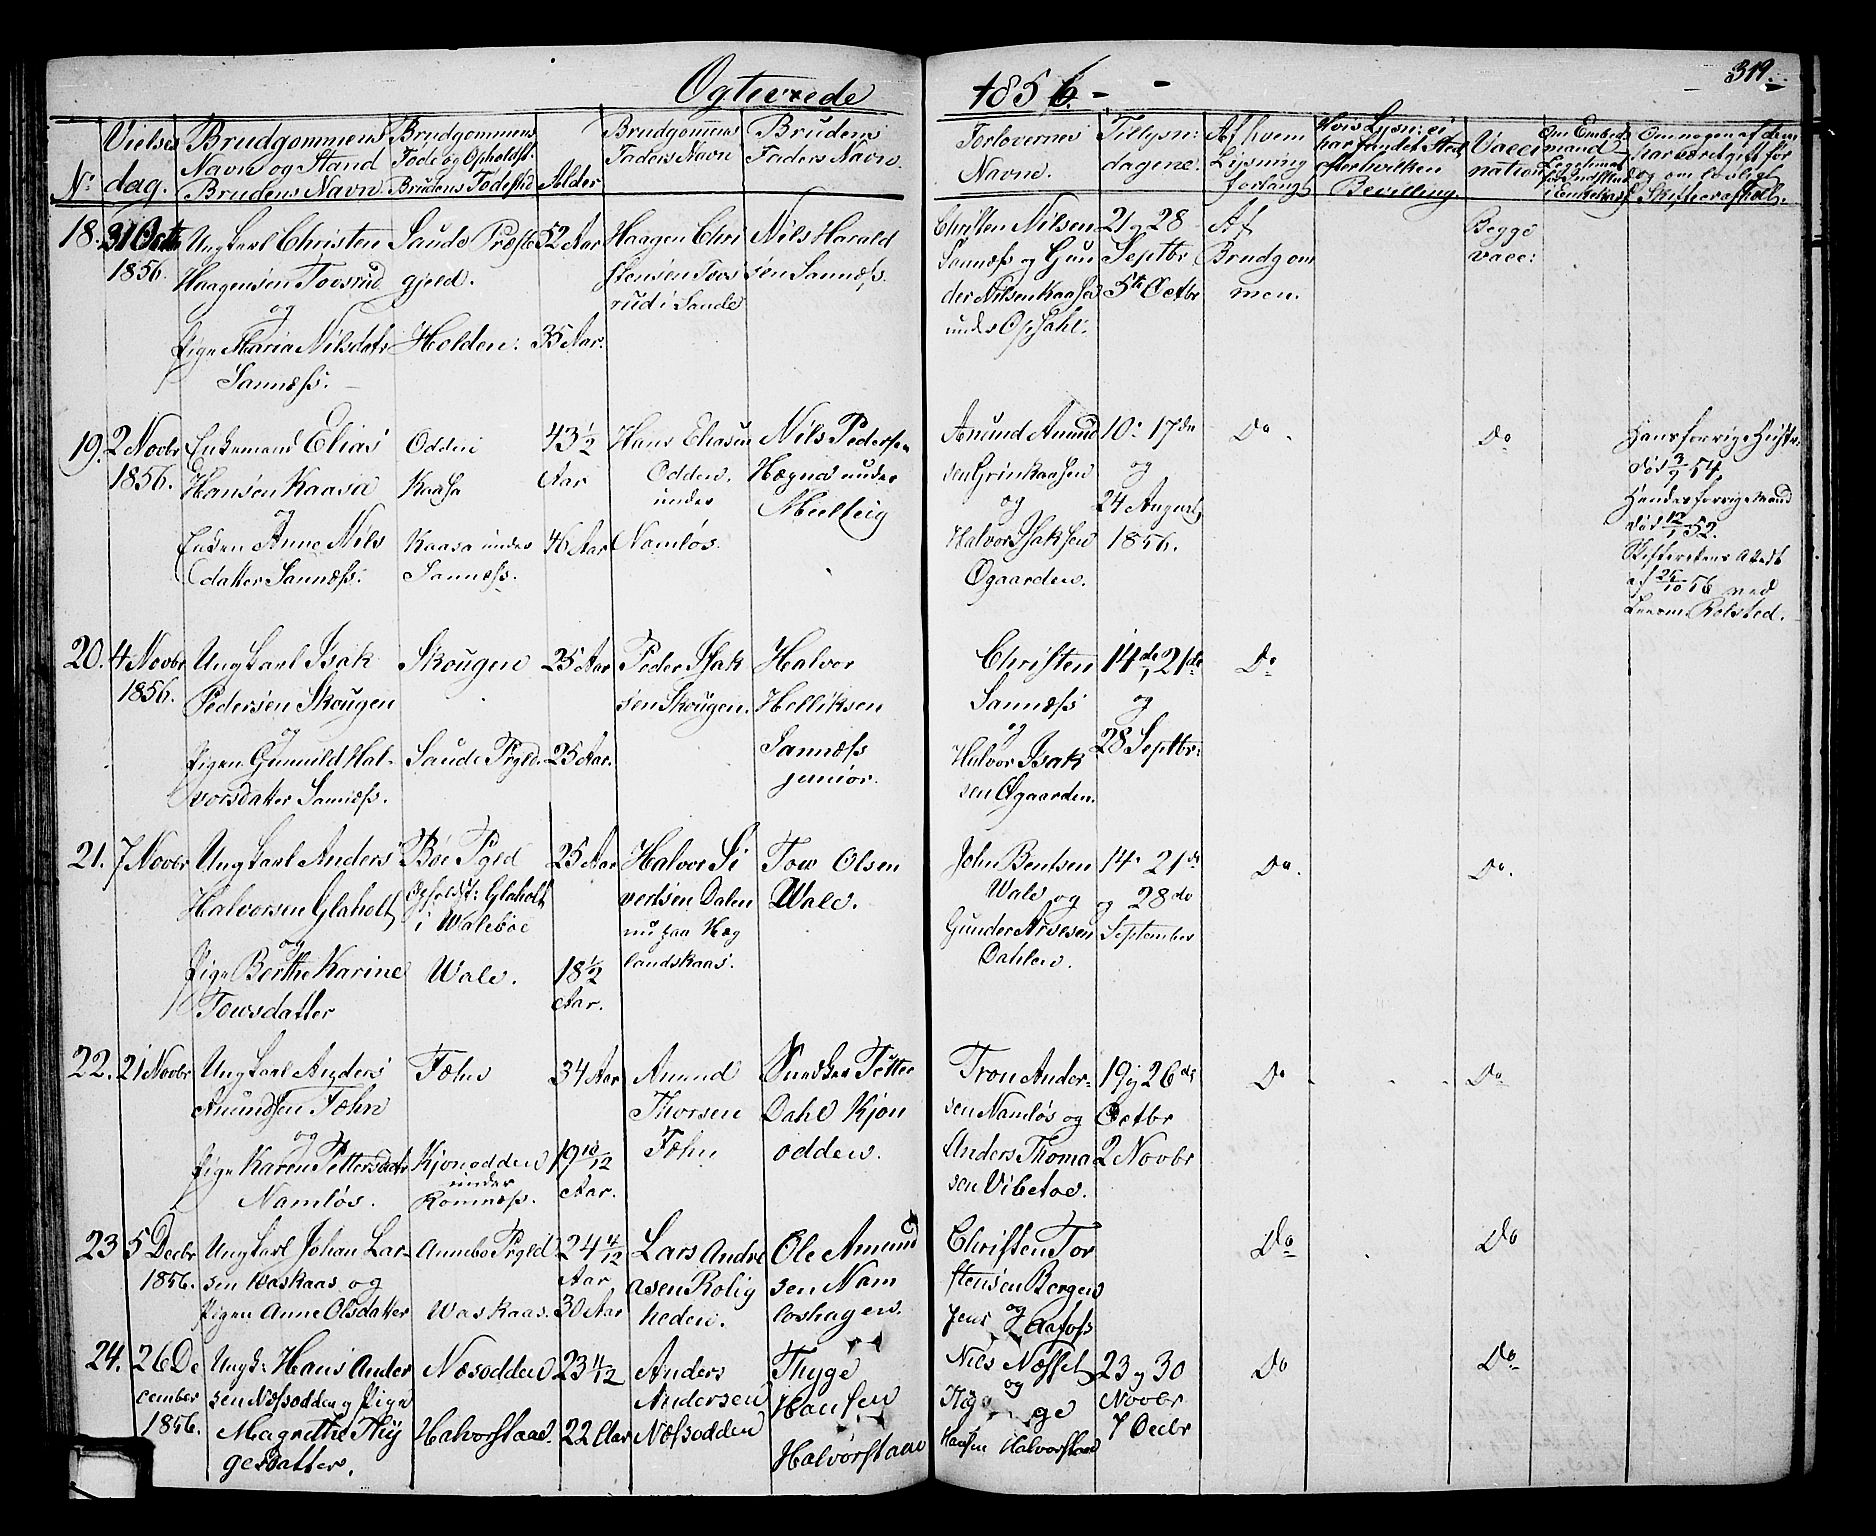 Ogteviede 1856.
319.
N:
Vielses
dag.
Brudgommens
Navn og Stand
Brudens Navn.
Brudgommens
Føde og Opholdst.
Brudens Fødested
Alder
Brudgommens
Faders Navn
Brudens
Faders Navn
Forlovernes
Navne.
Tillysn:
dagene.
Af hvem
Lysning
forlangt
Hvis Lysn: ei
har fundet Sted
efter hvilken
Bevilling.
Vacci
nation
Om Embeds
mand
Legitimat
i Enkekasse
Om nogen af dem
har været gift før
og om lovligt
Skifte er afholdt.
18.
31 Octb
1856.
Ungkarl Christen
Haagensen Tovsrud
og
Pige Maria Nilsdatr
Sannæss.
Saude Præste
gjeld.
Holden:
52 Aar
35 Aar:
Haagen Chri
stensen Tovs
rud i Saude
Nils Harald
sen Sannæss.
Christen Nilsen
Sannæss og Gun
der Nilsen Kaasen
under Opsahl:
21 og 28
Septbr
5te Octbr
Af
Brudgom
men.
Begge
vacc:
19.
2 Novbr
1856.
Enkemand Elias
Hansen Kaasa
og
Enken Anne Nils
datter Sannæss.
Odden
Kaasa
Kaasa under
Sannæss.
43 1/2
Aar
46 Aar
Hans Eliasen
Odden.
under
Namløs.
Nils Peders en
Hægna under
Melteig
Anund Anund
sen Grinkaasen
og
Halvor Isaksen
Øgaarden.
10 17de
og
24 August
1856.
Do
Do
Hans forrige Hustr
død 3/9 54
Hendes forrige Mand
død 12/1 52.
Skifterettens Attest
af 25/10 56 ved
Rolsted.
20.
4 Novbr
1856.
Ungkarl Isak
Pedersen Skougen
og
Pigen Gunnild Hal-
vorsdatter Sannæss.
Skougen
Saude Pgld.
25 Aar
25 Aar.
Peder Isak
sen Skougen.
Halvor
Helliksen
Sannæss
junior.
Christen
Sannæss
og
Halvor Isak
sen Øgaarden.
14de, 21de
og
28 Septbr:
Do
21.
7 Novbr
Ungkarl Anders
Halvorsen Glaholt
og
Pige Berthe Karine
Towsdatter
Bøe Pgld
Opholdst: Glaholt
i Walebøe
Wale.
25 Aar
18 1/2
Aar.
Halvor Si
vertsen Dalen
nu paa Hæg
landskaas.
Tow Olsen
Wale.
John Bentsen
Wale og
Gunder Arvesen
Dahlen.
14 21de
og 28de
September
Do.
Do.
22.
21 Novbr
Ungkarl Anders
Anundsen Fæhn
og
Pige Karen Pettersdatr
Namløs.
Fæhn
Kjonodden
under
Romnæss.
34 Aar
19 10/12
Aar.
Anund
Thorsen
Fæhn
Snedker Petter
Dahl Kjon
odden.
Tron Ander-
sen Namløs og
Anders Thoma
sen Vibetoe.
19 og 26de
Octbr
2 Novbr
Do
Do
23
5 Decbr
1856.
Ungkarl Johan Lar-
sen Waskaas og
Pigen Anne Olsdatter
Annebo Pgld
Waskaas.
24 4/12
Aar
30 Aar
Lars Andre
asen Rolig
heden.
Ole Amund
sen Nam
loshagen.
Christen Tor
stensen Bergen
og
Jens Aafoss
Do
Do
24.
26 De
cember
1856.
Ungk: Hans Ander
sen Næssodden og Pige
Magrethe Thy
gesdatter.
Næsodden
Halvorstaae.
23 4/12
22 Aar
Anders
Andersen
Næssodden
Thyge
Hansen
Halvorstaae
Nils Næsset
og
Hansen Halvorstaae
23 og 30
Novbr
7 Decbr
Do
Do